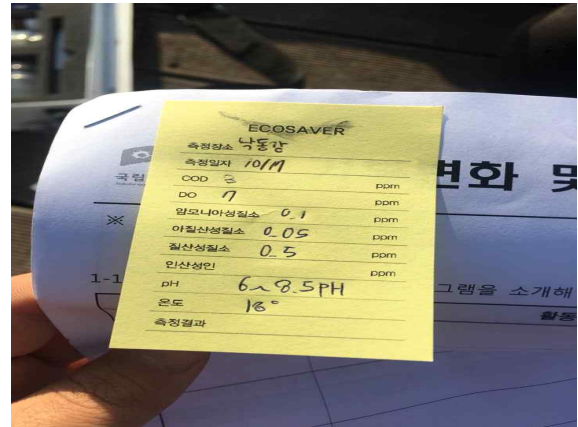 ECOSAVER
측정장소 낙동강
측정일자 10/17
COD 3 ppm
DO 7 ppm
암모니아성질소 0.1 ppm
아질산성질소 0.05 ppm
질산성질소 0.5 ppm
인산성인 ppm
pH 6~8.5PH
온도 18°
측정결과
국립
변화 및
※
1-1
그램을 소개해
활동